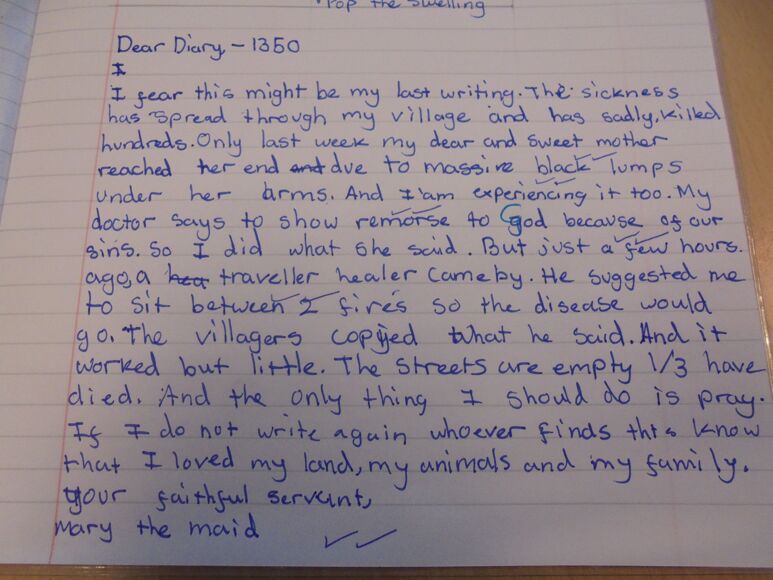 Pop the swelling
Dear Diary - 1350
I
I fear this might be my last writing. The sickness
has spread through my village and has sadly, killed
hundreds. Only last week my dear and sweet mother
reached her end and due to massive black lumps
under her arms. And I'am experiencing it too. My
doctor says to show remorse to God because of our
sins. So I did what she said. But just a few hours.
ago, a hea traveller healer came by. He suggested me
to sit between 2 fires so the disease would
go. The villagers copied what he said. And it
worked but little. The streets are empty 1/3 have
died. And the only thing I should do is pray.
If I do not write again whoever finds this know
that I loved my land, my animals and my family.
your faithful servant,
Mary the maid